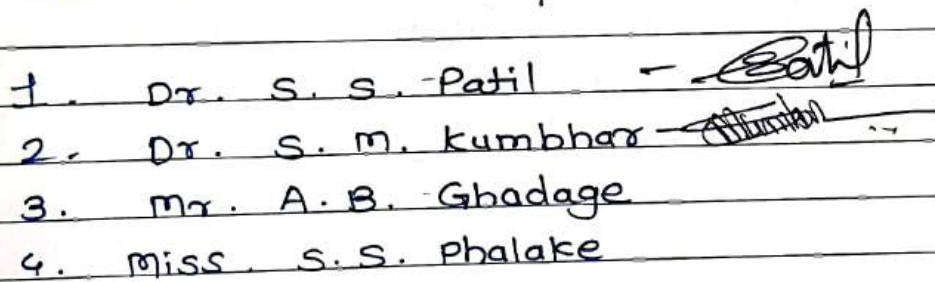 1. Dr. S. S. Patil - Patil
2. Dr. S. M. Kumbhar -
3. Mr. A. B. Ghadage
4. Miss. S. S. Phalake